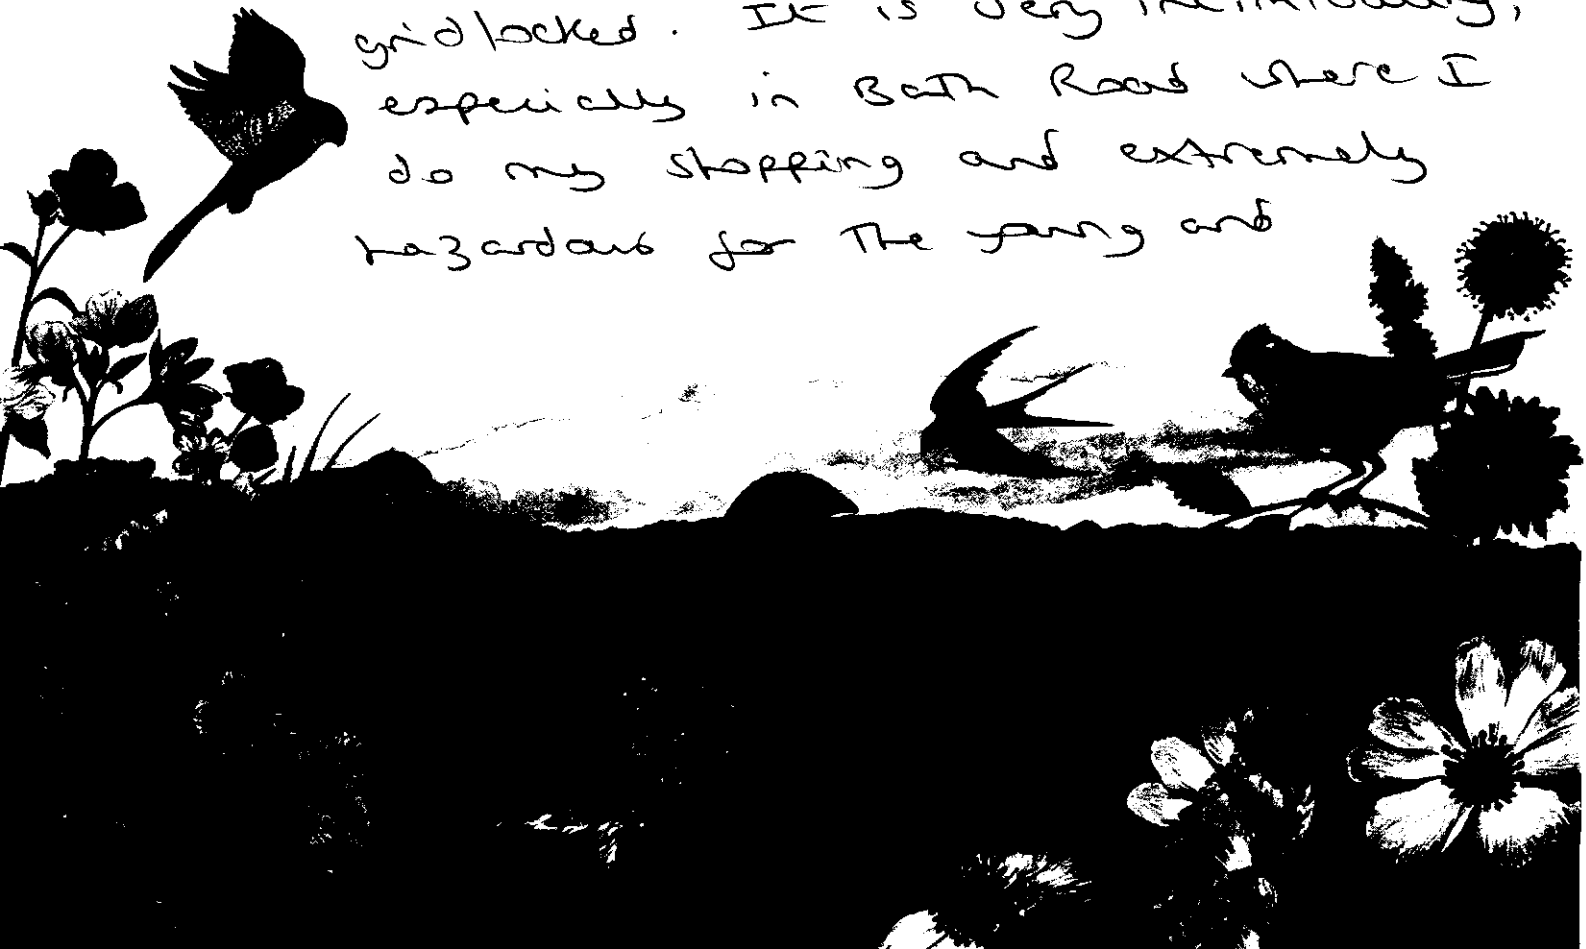 gridlocked. It is very intimidating,
especially in Bath Road where I
do my shopping and extremely
hazardous for the young and